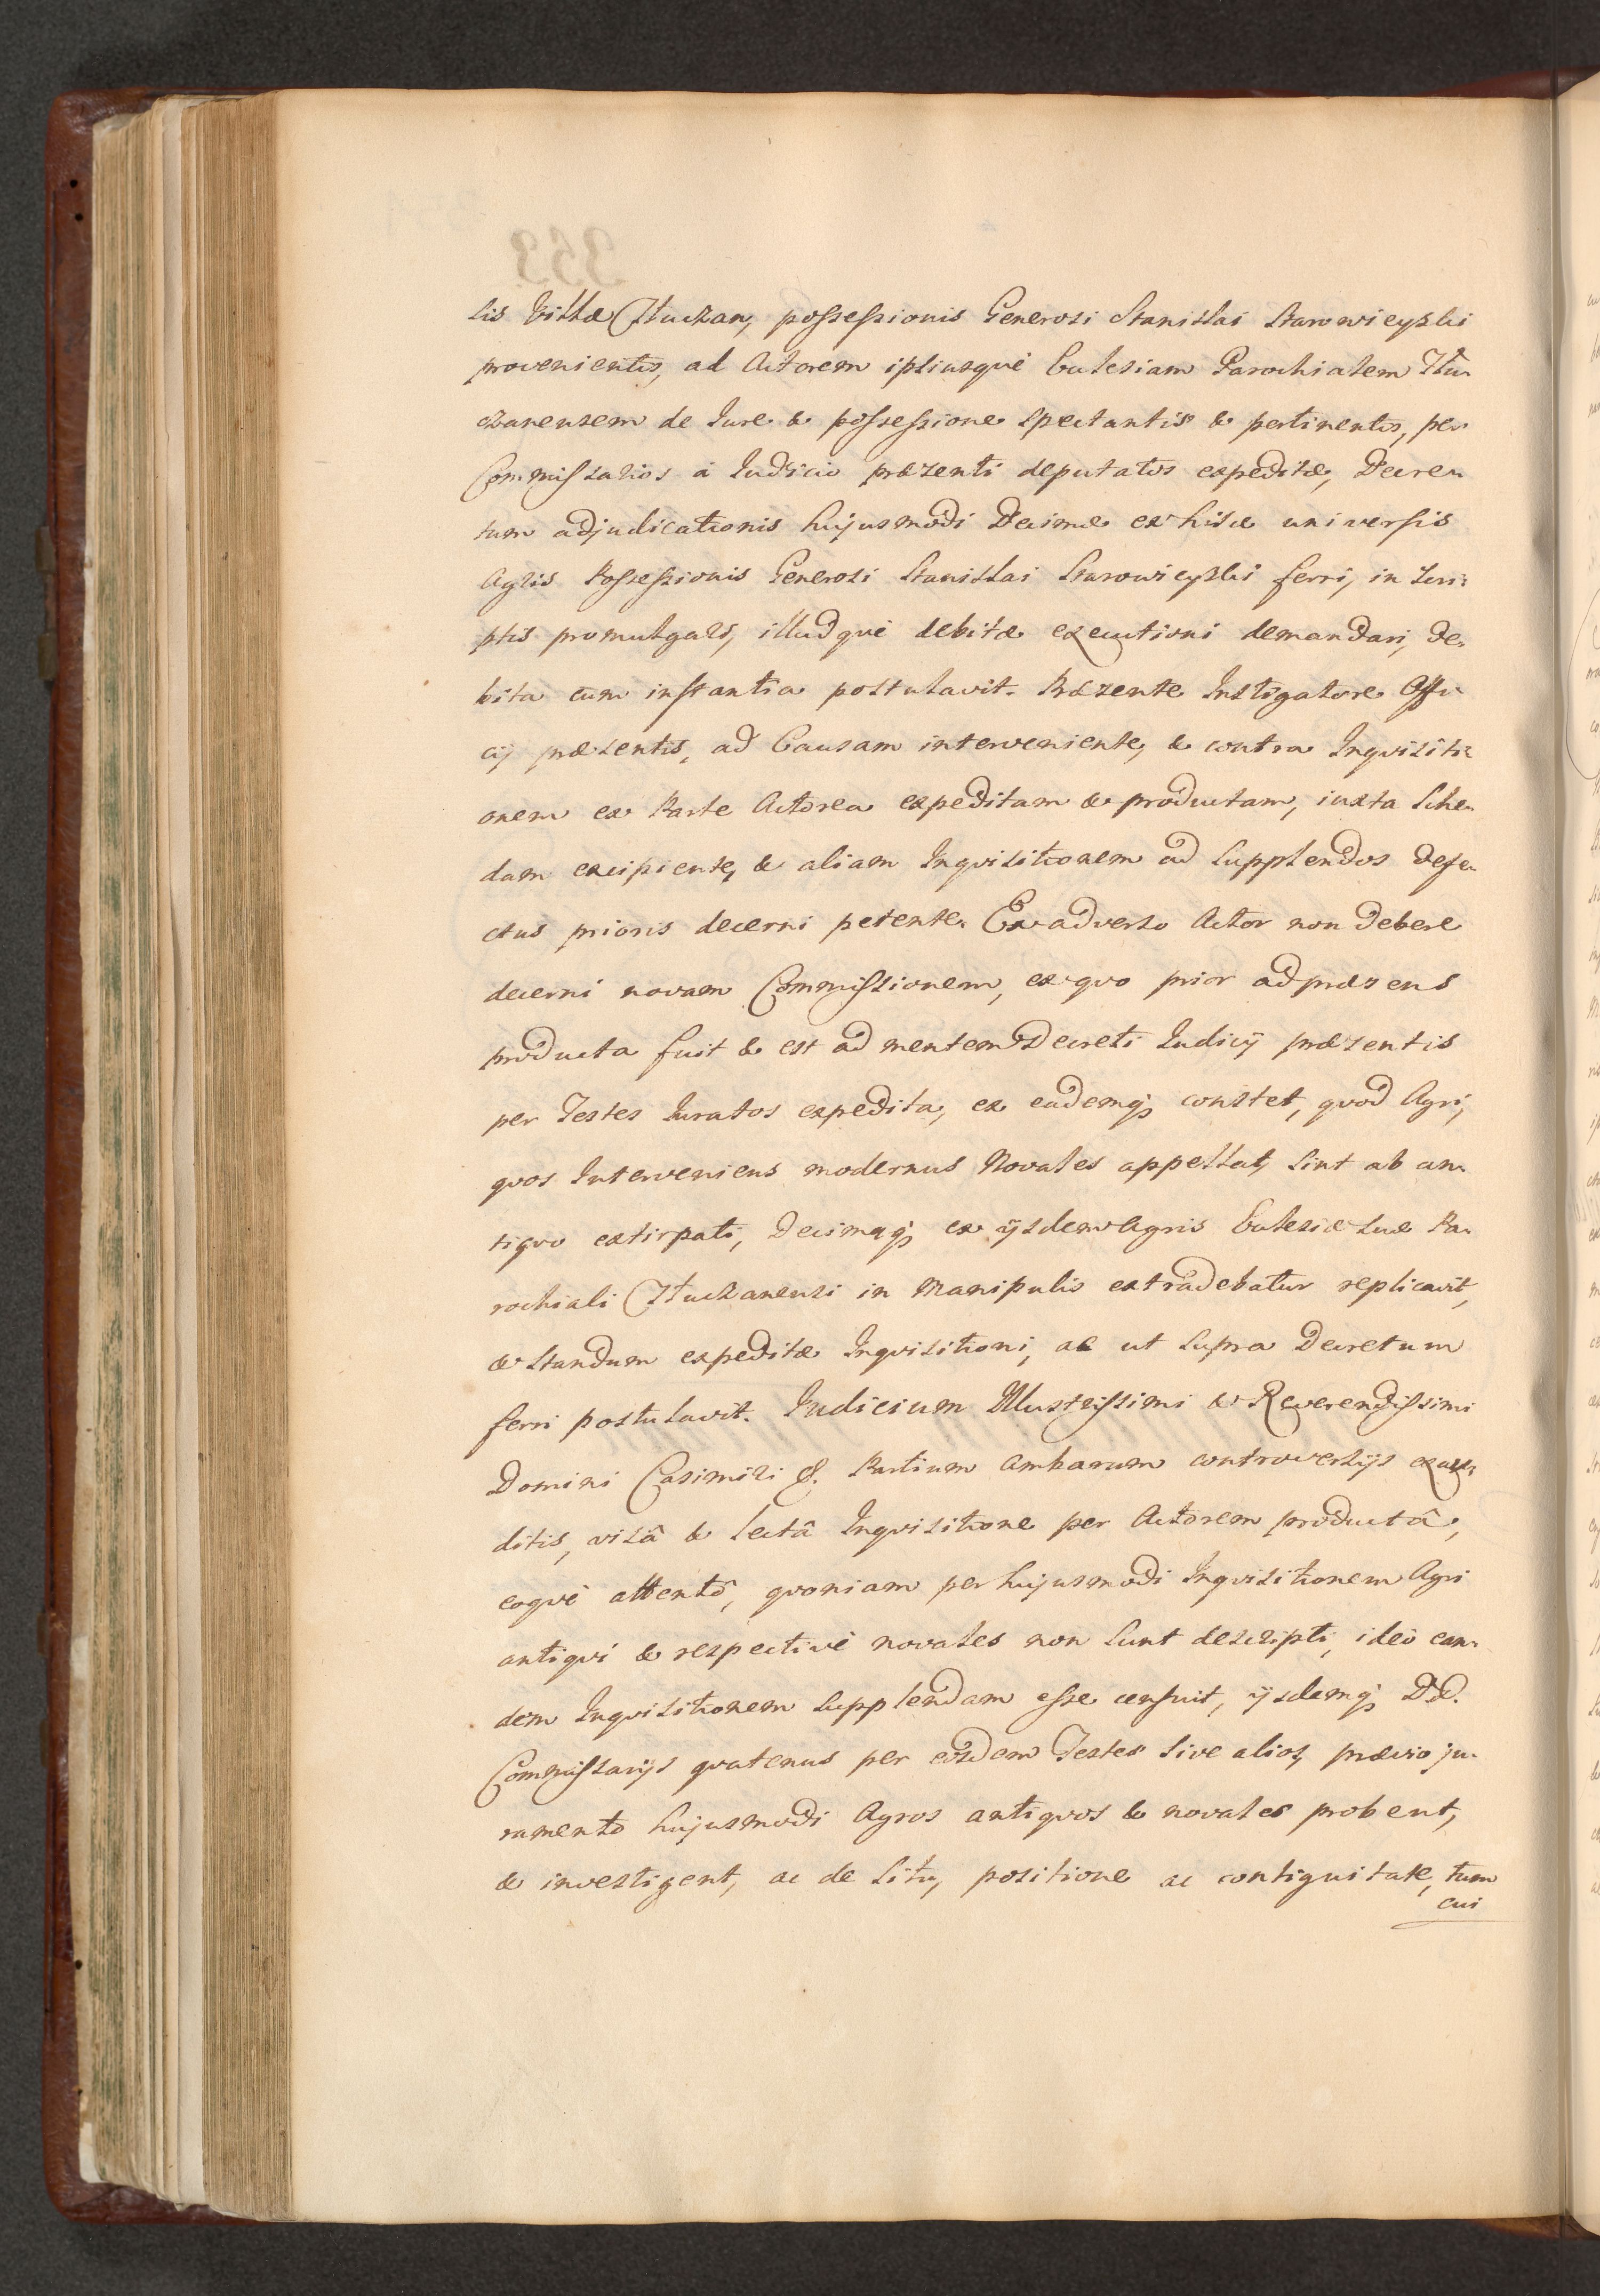 lis Villæ Tłuczan, possessionis Generosi Stanislai Starowieyski
provenientis, ad Actorem ipsiusquè Ecclesiam Parochialem Tłu-
czanensem de Iure & possessione spectantis & pertinentis, per
Commissarios à Iudicio præsenti deputatos expeditæ, Decre-
tum adjudicationis hujusmodi Decimæ ex hisce universis
Agris Possessionis Generosi Stanislai Starowieyski ferri, in scri-
ptis promulgari, illudquè debitæ executioni demandari, de-
bita cum instantia postulavit. Præsente Instigatore Offi-
cij præsentis, ad Causam interveniente, & contra Inqvisiti-
onem ex Parte Actorea expeditam & productam, iuxta Sche-
dam excipiente, & aliam Inqvisitionem ad supplendos defe-
ctus prioris decerni petente. Ex adverso Actor non debere
decerni novam Commissionem, ex qvo prior ad præsens
producta fuit & est ad mentem Decreti Iudicij præsentis
per Testes Iuratos expedita, ex eademq; constet, qvod Agri,
qvos Interveniens modernus Novales appellat, sint ab an-
tiqvo extirpati, Decimaq; ex ijsdem Agris Ecclesiæ suæ Pa-
rochiali Tłuczanensi in Manipulis extradebatur replicavit,
& standum expeditæ Inqvisitioni, ac ut supra Decretum
ferri postulavit. Iudicium Illustrissimi & Reverendissimi
Domini Casimiri &. Partium Ambarum controversijs exau-
ditis, visâ & lectâ Inqvisitione per Actorem productâ,
eoqvè attentô, qvoniam per hujusmodi Inqvisitionem Agri
antiqvi & respectivè novales non sunt descripti, ideò ean-
dem Inqvisitionem supplendam esse censuit, ijsdemq; DD.
Commissarijs qvatenus per eosdem Testes sive alios, prævio ju-
ramento hujusmodi Agros antiqvos & novales probent,
& investigent, ac de situ, positione ac contiguitate, tum
cui